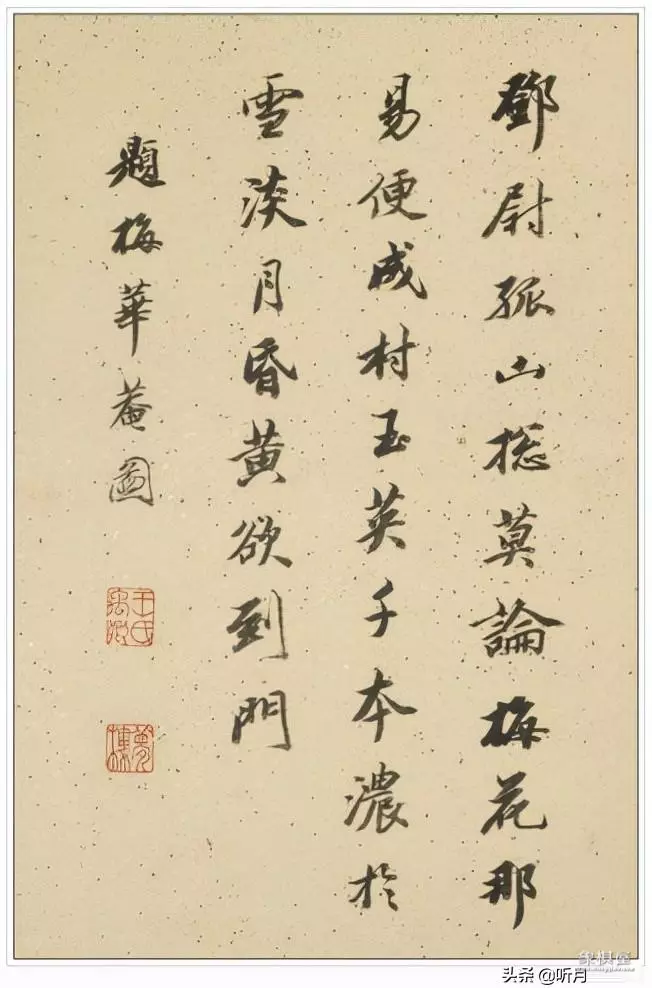 鄧尉孤山捴莫論梅花那
易便成村玉英千本濃於
雪淡月昏黄欲到門
題梅華菴圖
頭条@听月